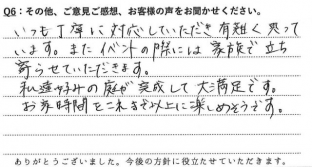 Q6：その他、ご意見ご感想、お客様の声をお聞かせください。
いつも丁寧に対応していただき有難く思って
います。またイベントの際には家族で立ち
寄らせていただきます。
私達好みの庭が完成して大満足です。
お茶時間をこれまで以上に楽しめそうです。
ありがとうございました。今後の方針に役立たせていただきます。